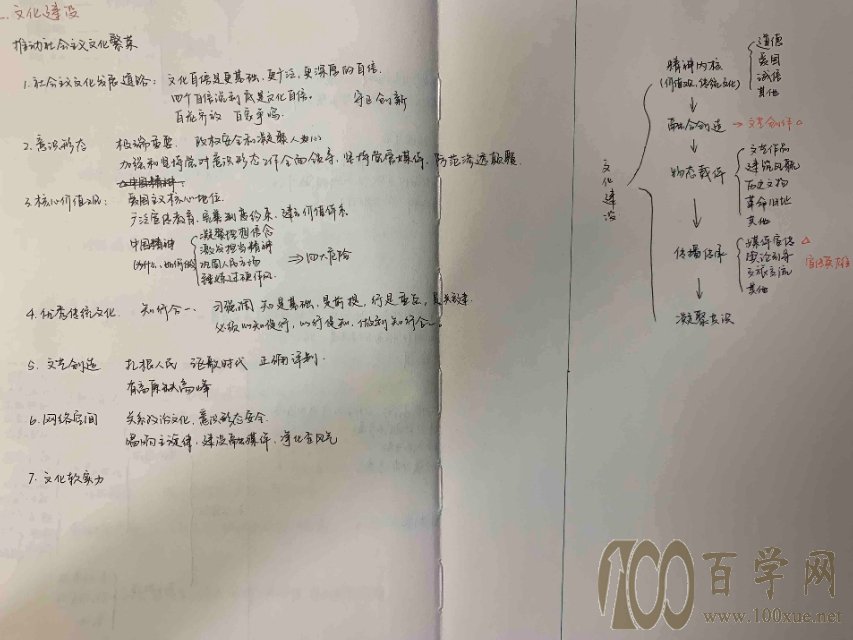 一.文化建设
推动社会主义文化繁荣
1.社会主义文化发展道路:文化自信是更基础、更广泛、更深厚的自信。
四个自信说到底是文化自信。 守正创新
百花齐放 百家争鸣
2.意识形态 极端重要 政权安全和凝聚人心
加强和坚持党对意识形态工作全面领导,坚持党管媒体,防范渗透颠覆
3.核心价值观:爱国主义核心地位
广泛宣传教育,
中国精神 凝聚理想信念
激发担当精神
巩固人民立场
锤炼过硬作风
⇒四大危险
4.优秀传统文化 知行合一、习强调 知是基础、是前提,行是重点、是关键
必须以知促行,以行促知,做到知行合一。
5.文艺创造 扎根人民 讴歌时代
有高原缺高峰
6.网络空间 关系政治文化、意识形态安全
唱响主旋律,建设融媒体,净化
7.文化软实力
文化建设
精神内核
(价值观,传统文化)
道德
爱国
诚信
其他
↓
融合创造 → 文艺创作△
↓
物态载体
文艺作品
建筑风貌
历史文物
革命旧址
其他
↓
传播传承
媒体宣传△
舆论引导
文旅交流
其他
↓
凝聚共识
100百学网
www.100xue.net